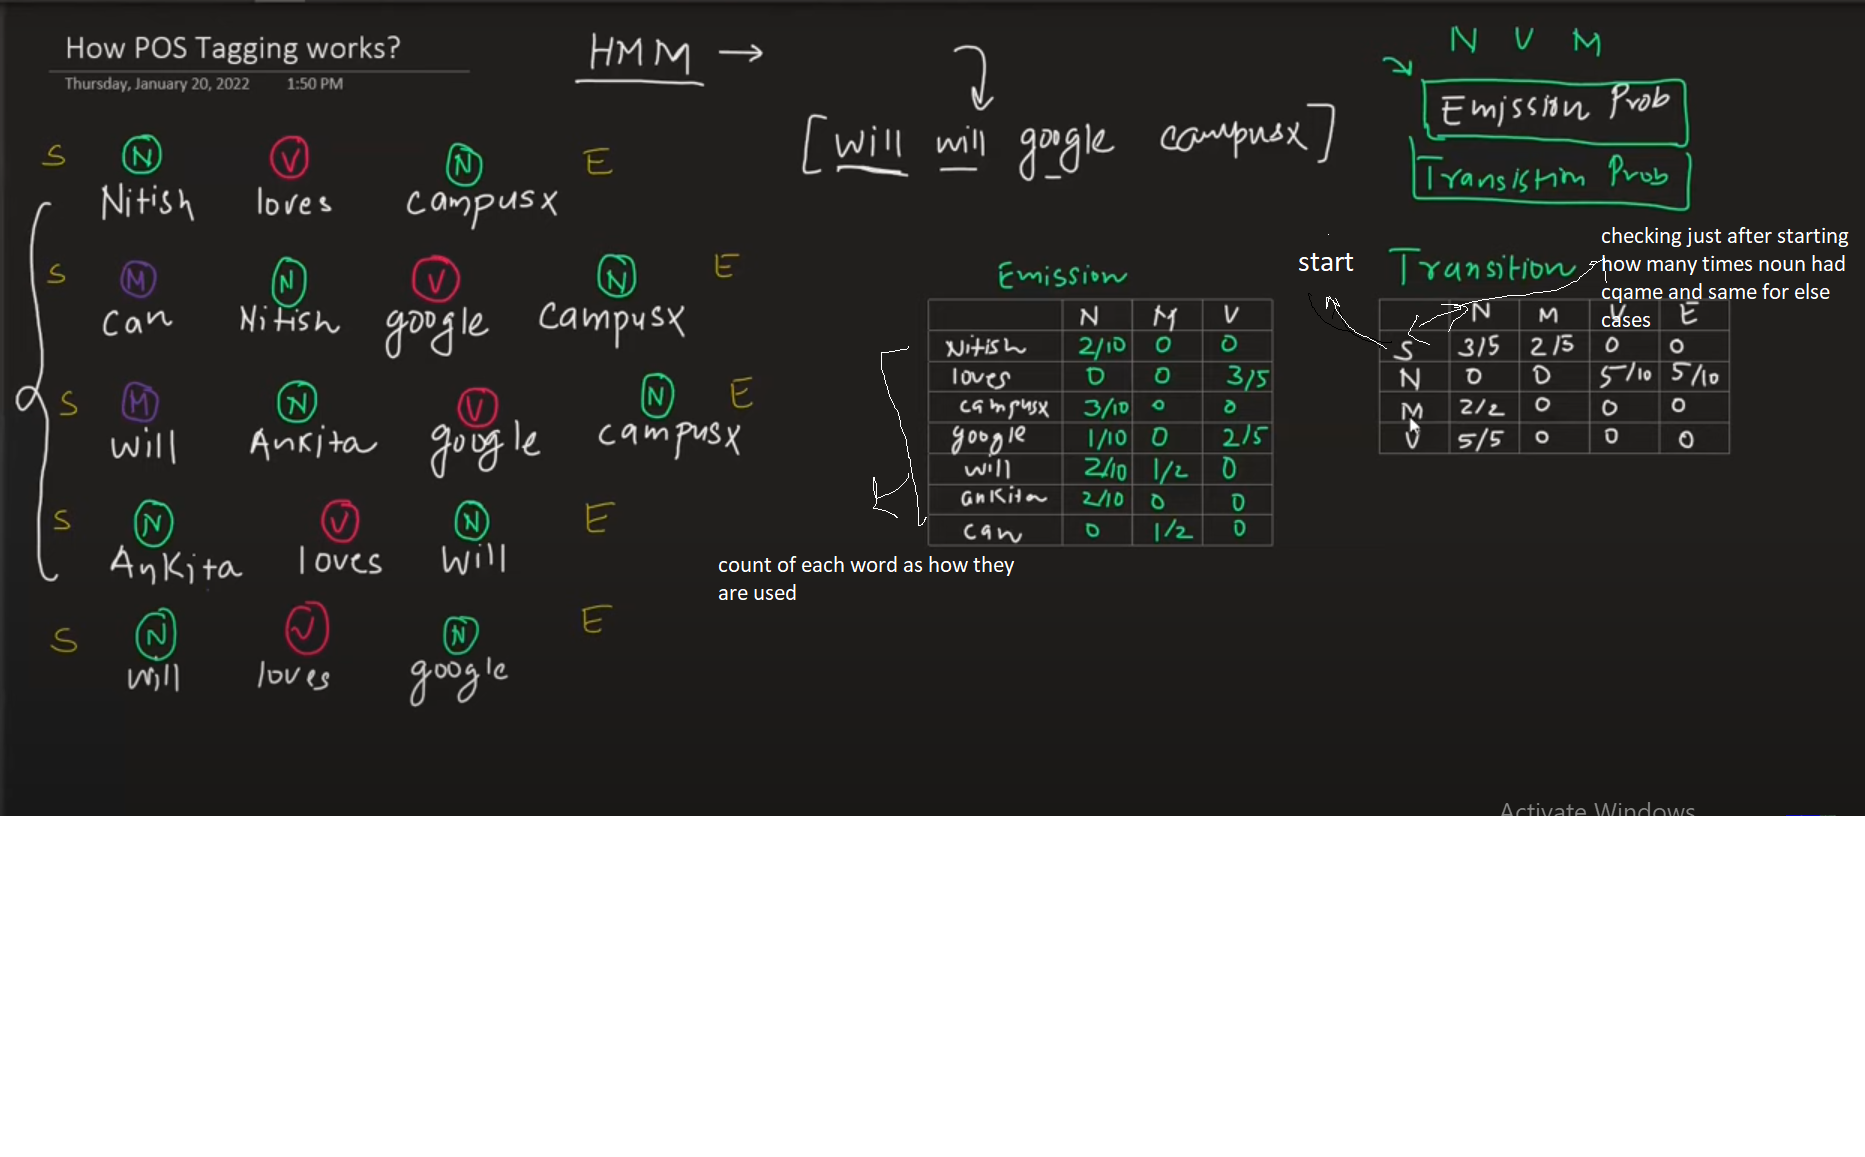 How POS Tagging works?
Thursday, January 20, 2022 1:50 PM
HMM →
[will will google campusx]
N V M
Emission Prob
Transistion Prob
S N V N E
Nitish loves campusx
S M N V N E
can Nitish google campusx
S M N V N E
will Ankita google campusx
S N V N E
Ankita loves will
S N V N E
will loves google
Emission
N M V
Nitish 2/10 0 0
loves 0 0 3/5
campusx 3/10 0 0
google 1/10 0 2/5
will 2/10 1/2 0
ankita 2/10 0 0
can 0 1/2 0
count of each word as how they
are used
start
Transition
checking just after starting
how many times noun had
cqame and same for else
cases
N M V E
S 3/5 2/5 0 0
N 0 0 5/10 5/10
M 2/2 0 0 0
V 5/5 0 0 0
Activate Windows